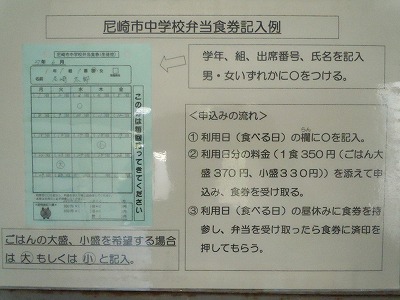 尼崎市中学校弁当食券記入例
学年、組、出席番号、氏名を記入
男・女いずれかに○をつける。
尼崎市中学校弁当食券
月 火 水 木 金
＜申込みの流れ＞
① 利用日（食べる日）の欄に○を記入。
らん
② 利用日分の料金（１食３５０円（ごはん大
盛３７０円、小盛３３０円））を添えて申
込み、食券を受け取る。
③ 利用日（食べる日）の昼休みに食券を持
参し、弁当を受け取ったら食券に済印を
押してもらう。
ごはんの大盛、小盛を希望する場合
は 大 もしくは 小 と記入。